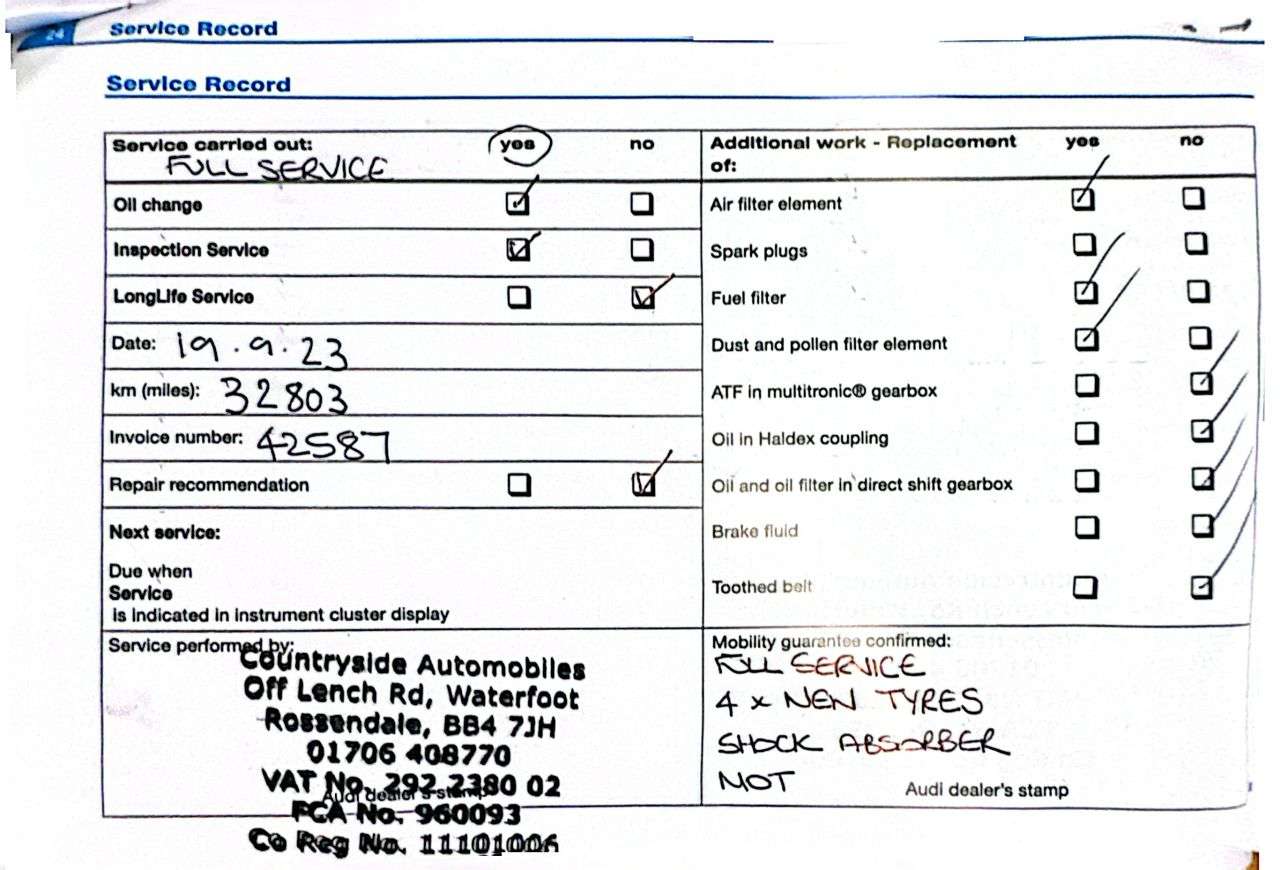 24 Service Record
Service Record
Service carried out: yes no
FULL SERVICE
Oil change
Inspection Service
LongLife Service
Date: 19.9.23
km (miles): 32803
Invoice number: 42587
Repair recommendation
Next service:
Due when
Service
is indicated in instrument cluster display
Service performed by:
Countryside Automobiles
Off Lench Rd, Waterfoot
Rossendale, BB4 7JH
01706 408770
VAT No. 292 2380 02
Audi dealer's stamp
FCA No. 960093
Co Reg No. 11101006
Additional work - Replacement yes no
of:
Air filter element
Spark plugs
Fuel filter
Dust and pollen filter element
ATF in multitronic® gearbox
Oil in Haldex coupling
Oil and oil filter in direct shift gearbox
Brake fluid
Toothed belt
Mobility guarantee confirmed:
FULL SERVICE
4 x NEW TYRES
SHOCK ABSORBER
MOT
Audi dealer's stamp